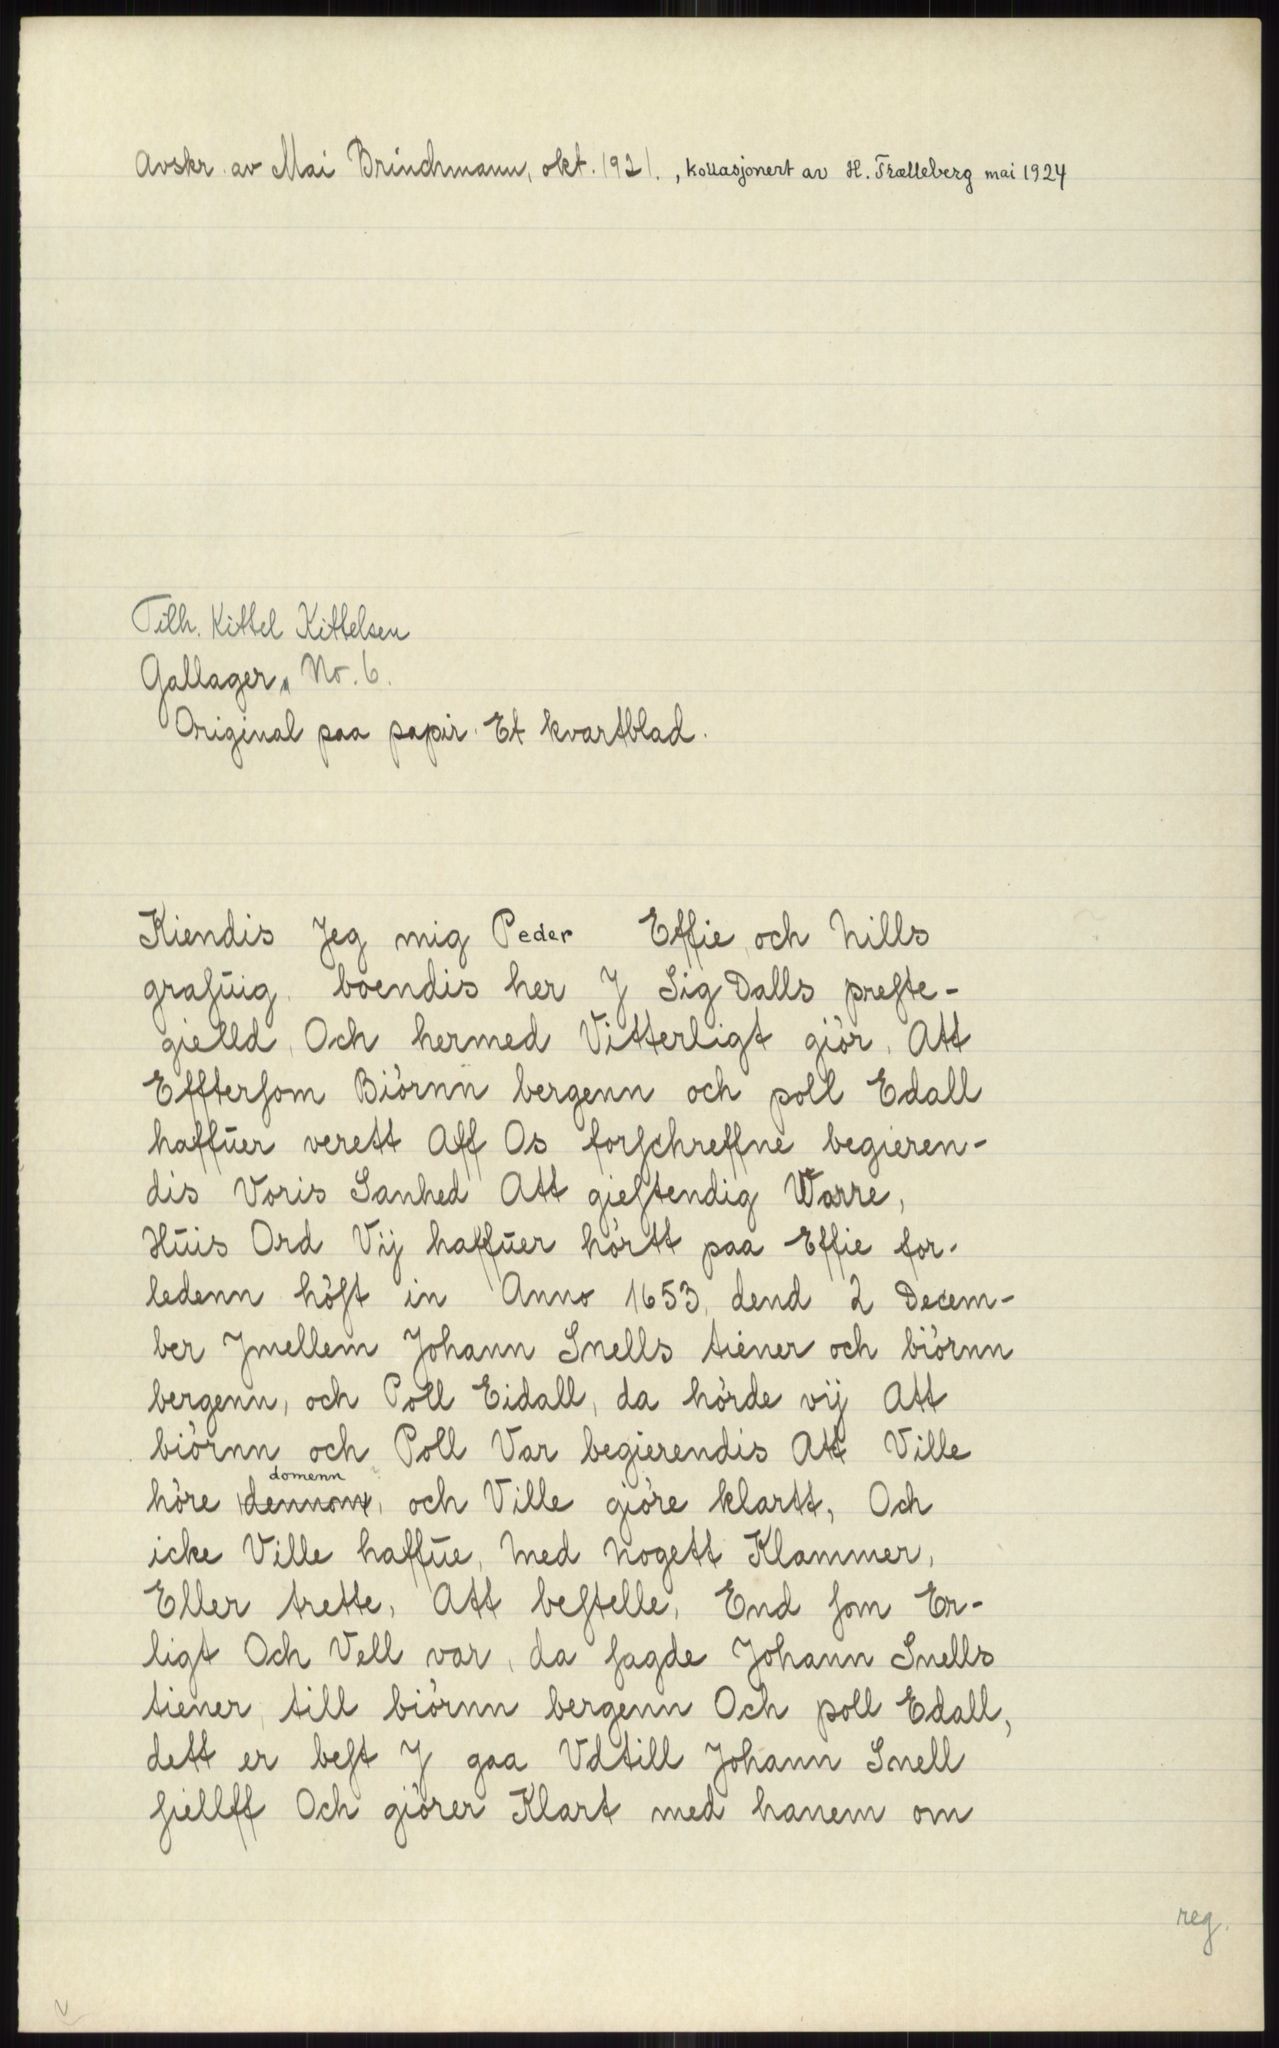 Avskr. av Mai Brinchmann, okt. 1921., kollasjonert av H. Trælleberg mai 1924
Tilh. Kittel Kittelsen
Gallager, No. 6.
Original paa papir. Et kvartblad.
Kiendis Jeg mig Peder Effie, och Nills
graſuig, boendis her J Sig Dalls preſte-
gielld, Och hermed Vitterligt giör, Att
Effterſom Biörnn bergenn och poll Edall
haffuer verett Aff Os forſchreffne begieren-
dis Voris Sanhed Att gieſtendig Warre,
Huis Ord Vij haffuer hörtt paa Effie for-
ledenn höſt in Anno 1653, dend 2 Decem-
ber Jmellem Johann Snells tiener och biörnn
bergenn, och Poll Eidall, da hörde vij Att
biörnn och Poll Var begierendis Att Ville
domenn
höre dennom, och Ville giöre klartt, Och
icke Ville haffue, med nogett Klammer,
Eller trette, Att beſtelle, End ſom Er-
ligt Och Vell var, da ſagde Johann Snells
tiener, till biörnn bergenn Och poll Edall,
dett er beſt J gaa Vdtill Johann Snell
ſiellff Och giörer Klart med hanem om
reg.